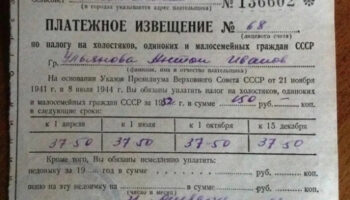 (в городах указывается адрес плательщика)
№ 136602
ПЛАТЕЖНОЕ ИЗВЕЩЕНИЕ № 68
(лицевого счета)
по налогу на холостяков, одиноких и малосемейных граждан СССР
Гр.
(фамилия, имя и отчество плательщика)
На основании Указов Президиума Верховного Совета СССР от 21 ноября
1941 г. и 8 июля 1944 г. Вы обязаны уплатить налог на холостяков, одиноких
и малосемейных граждан СССР за 1952 г. в сумме 150 руб. коп.
в следующие сроки:
к 1 апреля к 1 июля к 1 октября к 15 декабря
37-50 37-50 37-50 37-50
Кроме того, Вы обязаны немедленно уплатить:
недоимку за 19 год в сумме руб. коп.
пеню на эту недоимку по руб. коп.
(число и месяц)